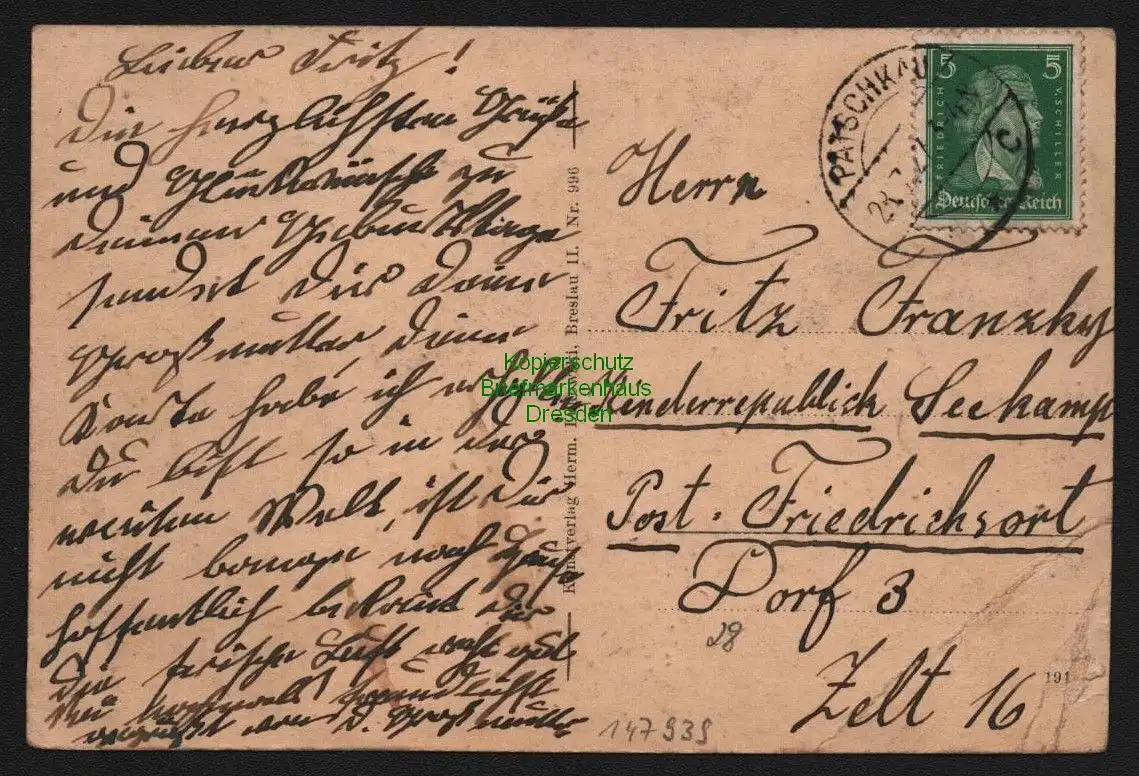 Lieber Fritz!
Die herzlichsten Grüße
und Glückwünsche zu
deinem Geburtstage
sendet dir deine
Großmutter deine
Karte habe ich erhalten
du bist so in der
weiten Welt, ist dir
nicht bange nach Haus
hoffentlich bekomt dir
die frische Luft recht gut
Sei nochmals freundlichst
gegrüßt von d. Großmutter
Kunstverlag Herm. Breslau II. Nr. 996
PATSCHKAU
C
5 5
FRIEDRICH V. SCHILLER
Deutsches Reich
Herrn
Fritz Franzky
Kinderrepublick Seekamp
Post. Friedrichsort
Dorf 3
28
Zelt 16
191
147939
Kopierschutz
Briefmarkenhaus
Dresden